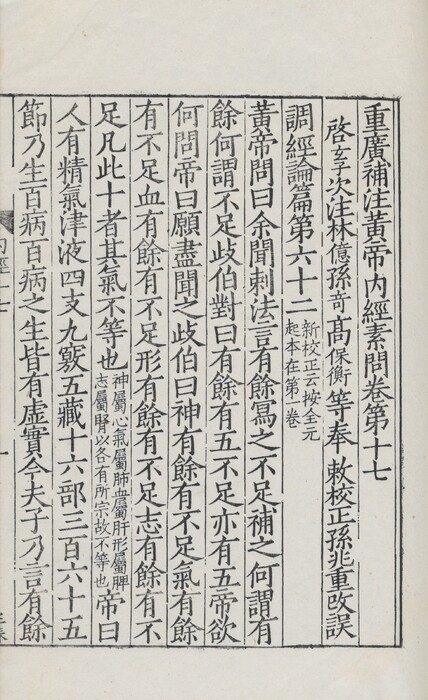 重廣補注黃帝內經素問卷第十七
啓玄子次注林億孫奇高保衡等奉敕校正孫兆重改誤
調經論篇第六十二新校正云按全元起本在第一卷
黃帝問曰余聞刺法言有餘寫之不足補之何謂有
餘何謂不足歧伯對曰有餘有五不足亦有五帝欲
何問帝曰願盡聞之歧伯曰神有餘有不足氣有餘
有不足血有餘有不足形有餘有不足志有餘有不
足凡此十者其氣不等也神屬心氣屬肺血屬肝形屬脾志屬腎以各有所宗故不等也帝曰
人有精氣津液四支九竅五藏十六部三百六十五
節乃生百病百病之生皆有虛實今夫子乃言有餘